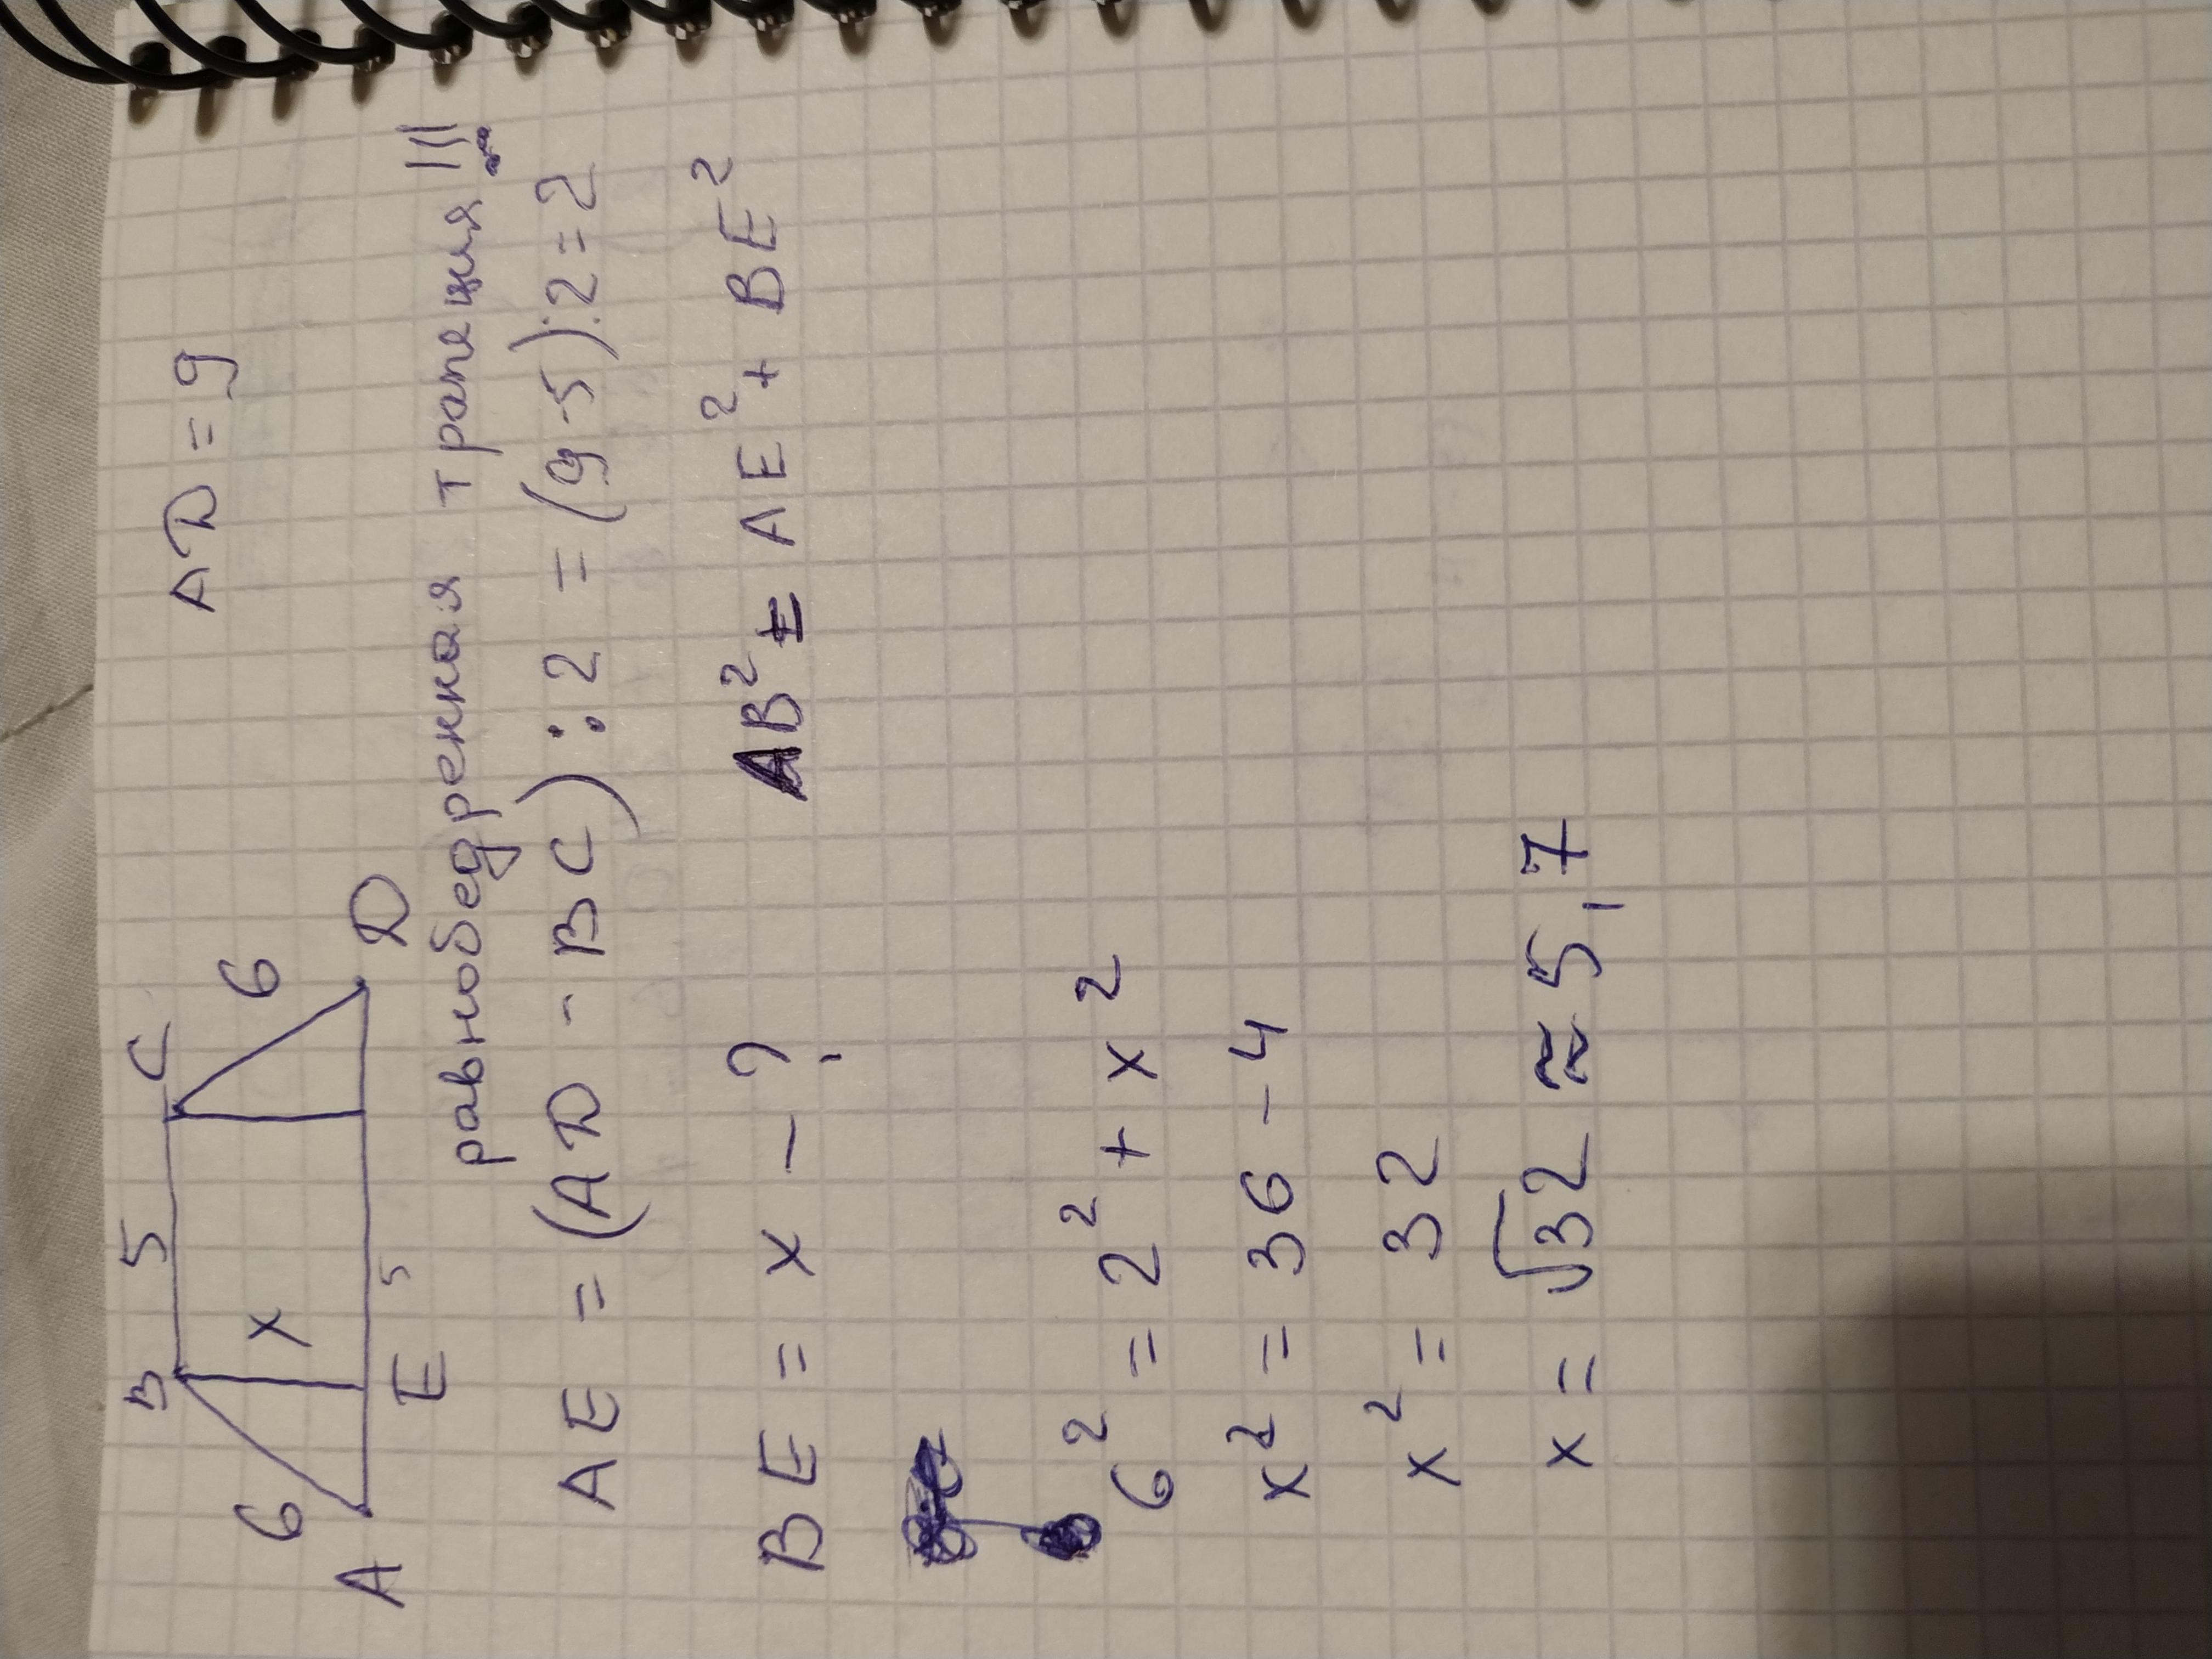 B 5 C AD = 9
6 x 6
A E 5 D
равнобедренная трапеция !!!
AE = (AD - BC) : 2 = (9-5):2=2
BE = x - ? AB² = AE² + BE²
6² = 2² + x²
x² = 36 - 4
x² = 32
x = √32 ≈ 5,7